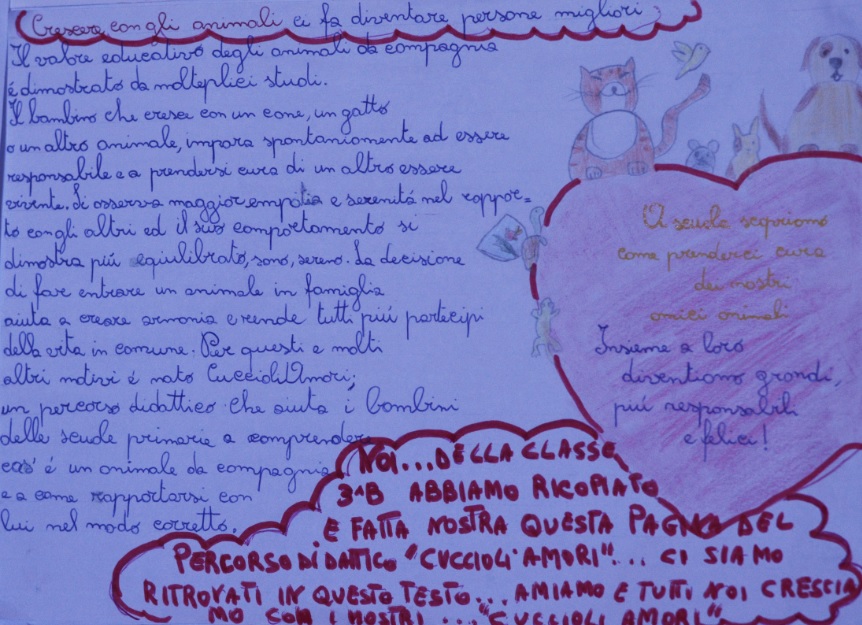 Crescere con gli animali ci fa diventare persone migliori
Il valore educativo degli animali da compagnia
é dimostrato da molteplici studi.
Il bambino che cresce con un cane, un gatto
o un altro animale, impara spontaniamente ad essere
responsabile e a prendersi cura di un altro essere
vivente. Si osserva maggior empatia e serenitá nel rappor=
to con gli altri ed il suo comportamento si
dimostra piú equilibrato, sano, sereno. La decisione
di far entrare un animale in famiglia
aiuta a creare armonia e rende tutti piú partecipi
della vita in comune. Per questi e molti
altri motivi é nato Cuccioli Amori;
un percorso didattico che aiuta i bambini
delle scuole primarie a comprendere
cos' é un animale da compagnia
e a come rapportarsi con
lui nel modo corretto.
A scuola scopriamo
come prenderci cura
dei nostri
amici animali
Insieme a loro
diventiamo grandi,
piú responsabili
e felici!
NOI... DELLA CLASSE
3^B ABBIAMO RICOPIATO
E FATTA NOSTRA QUESTA PAGINA DEL
PERCORSO DIDATTICO "CUCCIOLI AMORI"... CI SIAMO
RITROVATI IN QUESTO TESTO... AMIAMO E TUTTI NOI CRESCIA
MO CON I NOSTRI ... "CUCCIOLI AMORI"